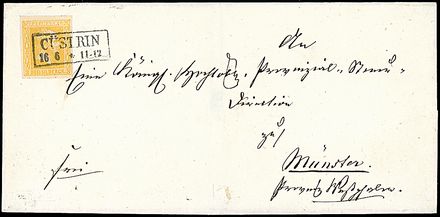 CÜSTRIN
16 6 * 11-12
An
Eine Königl. Hochlöbl. Provinzial-Steuer-
Direction
zu
Münster.
frei
Provinz Westphalen.